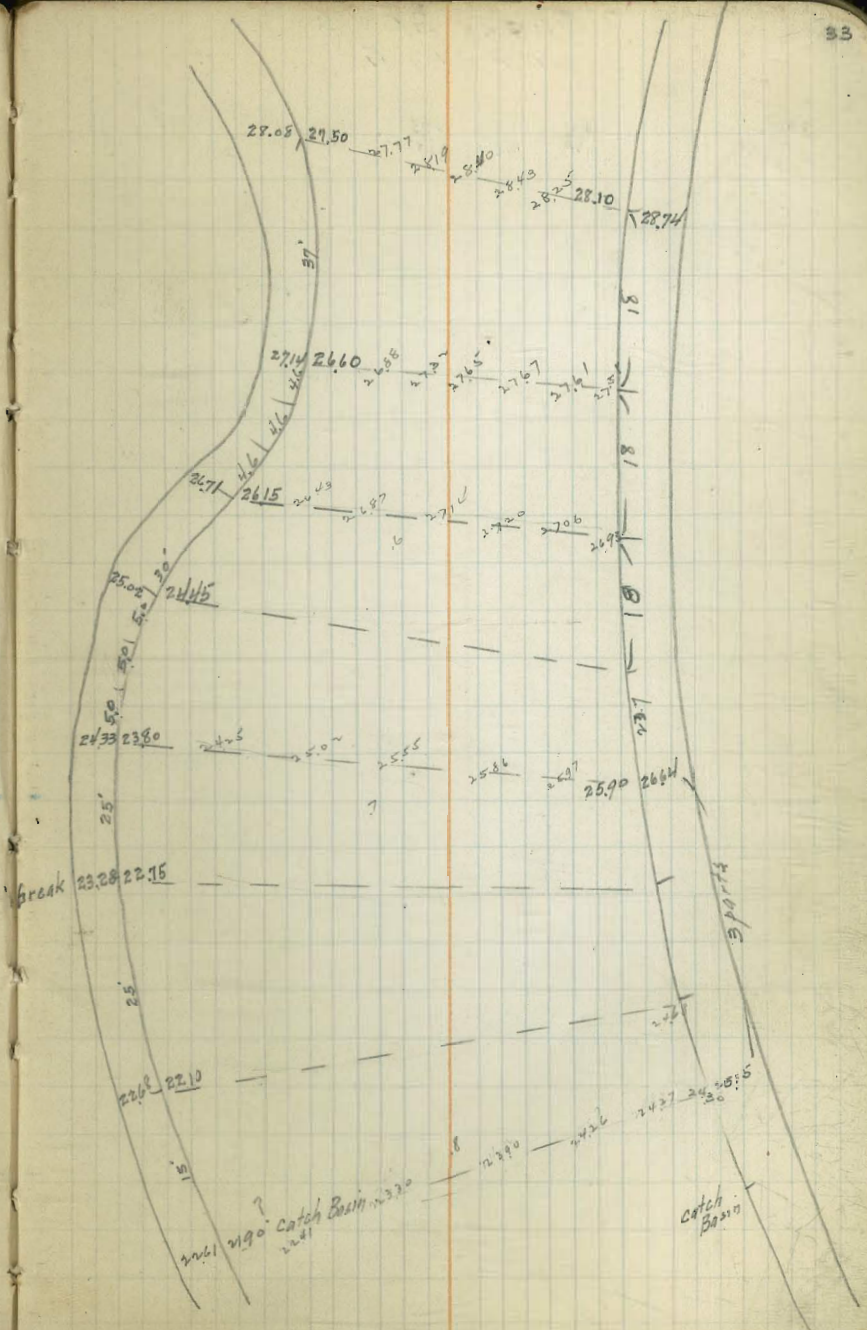 33
28.08 27.50 27.77 28.19 28.40 28.43 28.25 28.10 28.74
37'
18
27.14 26.60 26.88 27.65 27.67 27.61
4.6
4.6
4.6
18
26.71 26.15 26.87 27.20 27.06 26.93
.6
30'
25.02 24.45
5.0
18
5.0
5.0
23.7
24.33 23.80 24.25 25.02 25.55 25.86 25.97 25.90 26.64
25'
.7
break 23.28 22.75
25'
22.68 22.10
15'
22.61 21.90 ? Catch Basin 23.20 .8 23.90 24.26 24.37 24.30
22.41
Catch
Basin